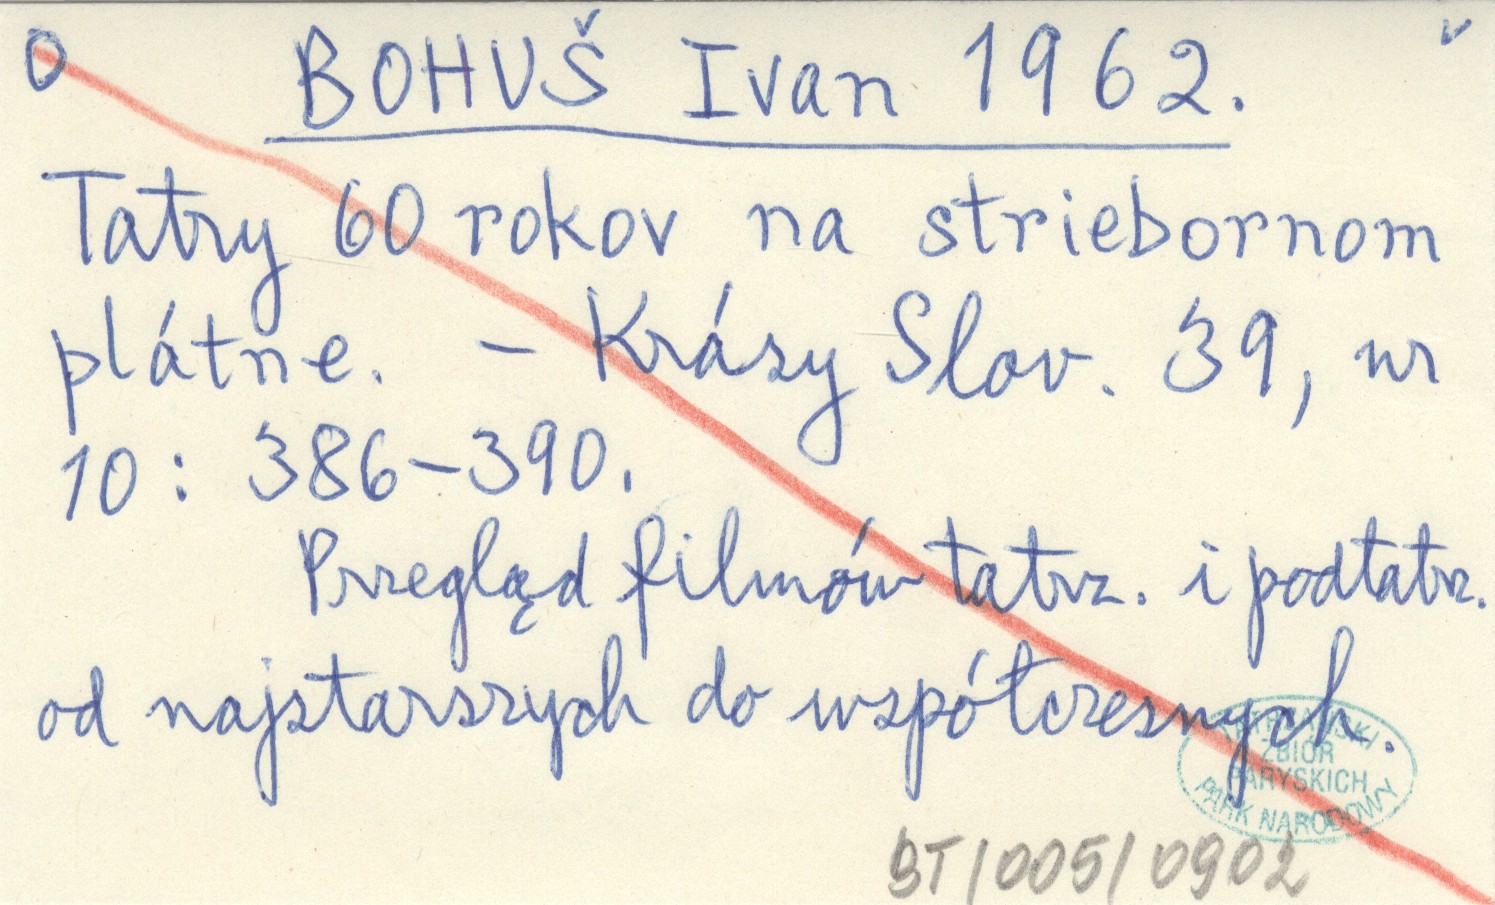 O BOHUŠ Ivan 1962.
Tatry 60 rokov na striebornom
plátne. – Krásy Slov. 39, nr
10: 386–390.
Przegląd filmów tatrz. i podtatrz.
od najstarszych do współczesnych.
TATRZAŃSKI
ZBIÓR
PARYSKICH
PARK NARODOWY
BT/005/0902